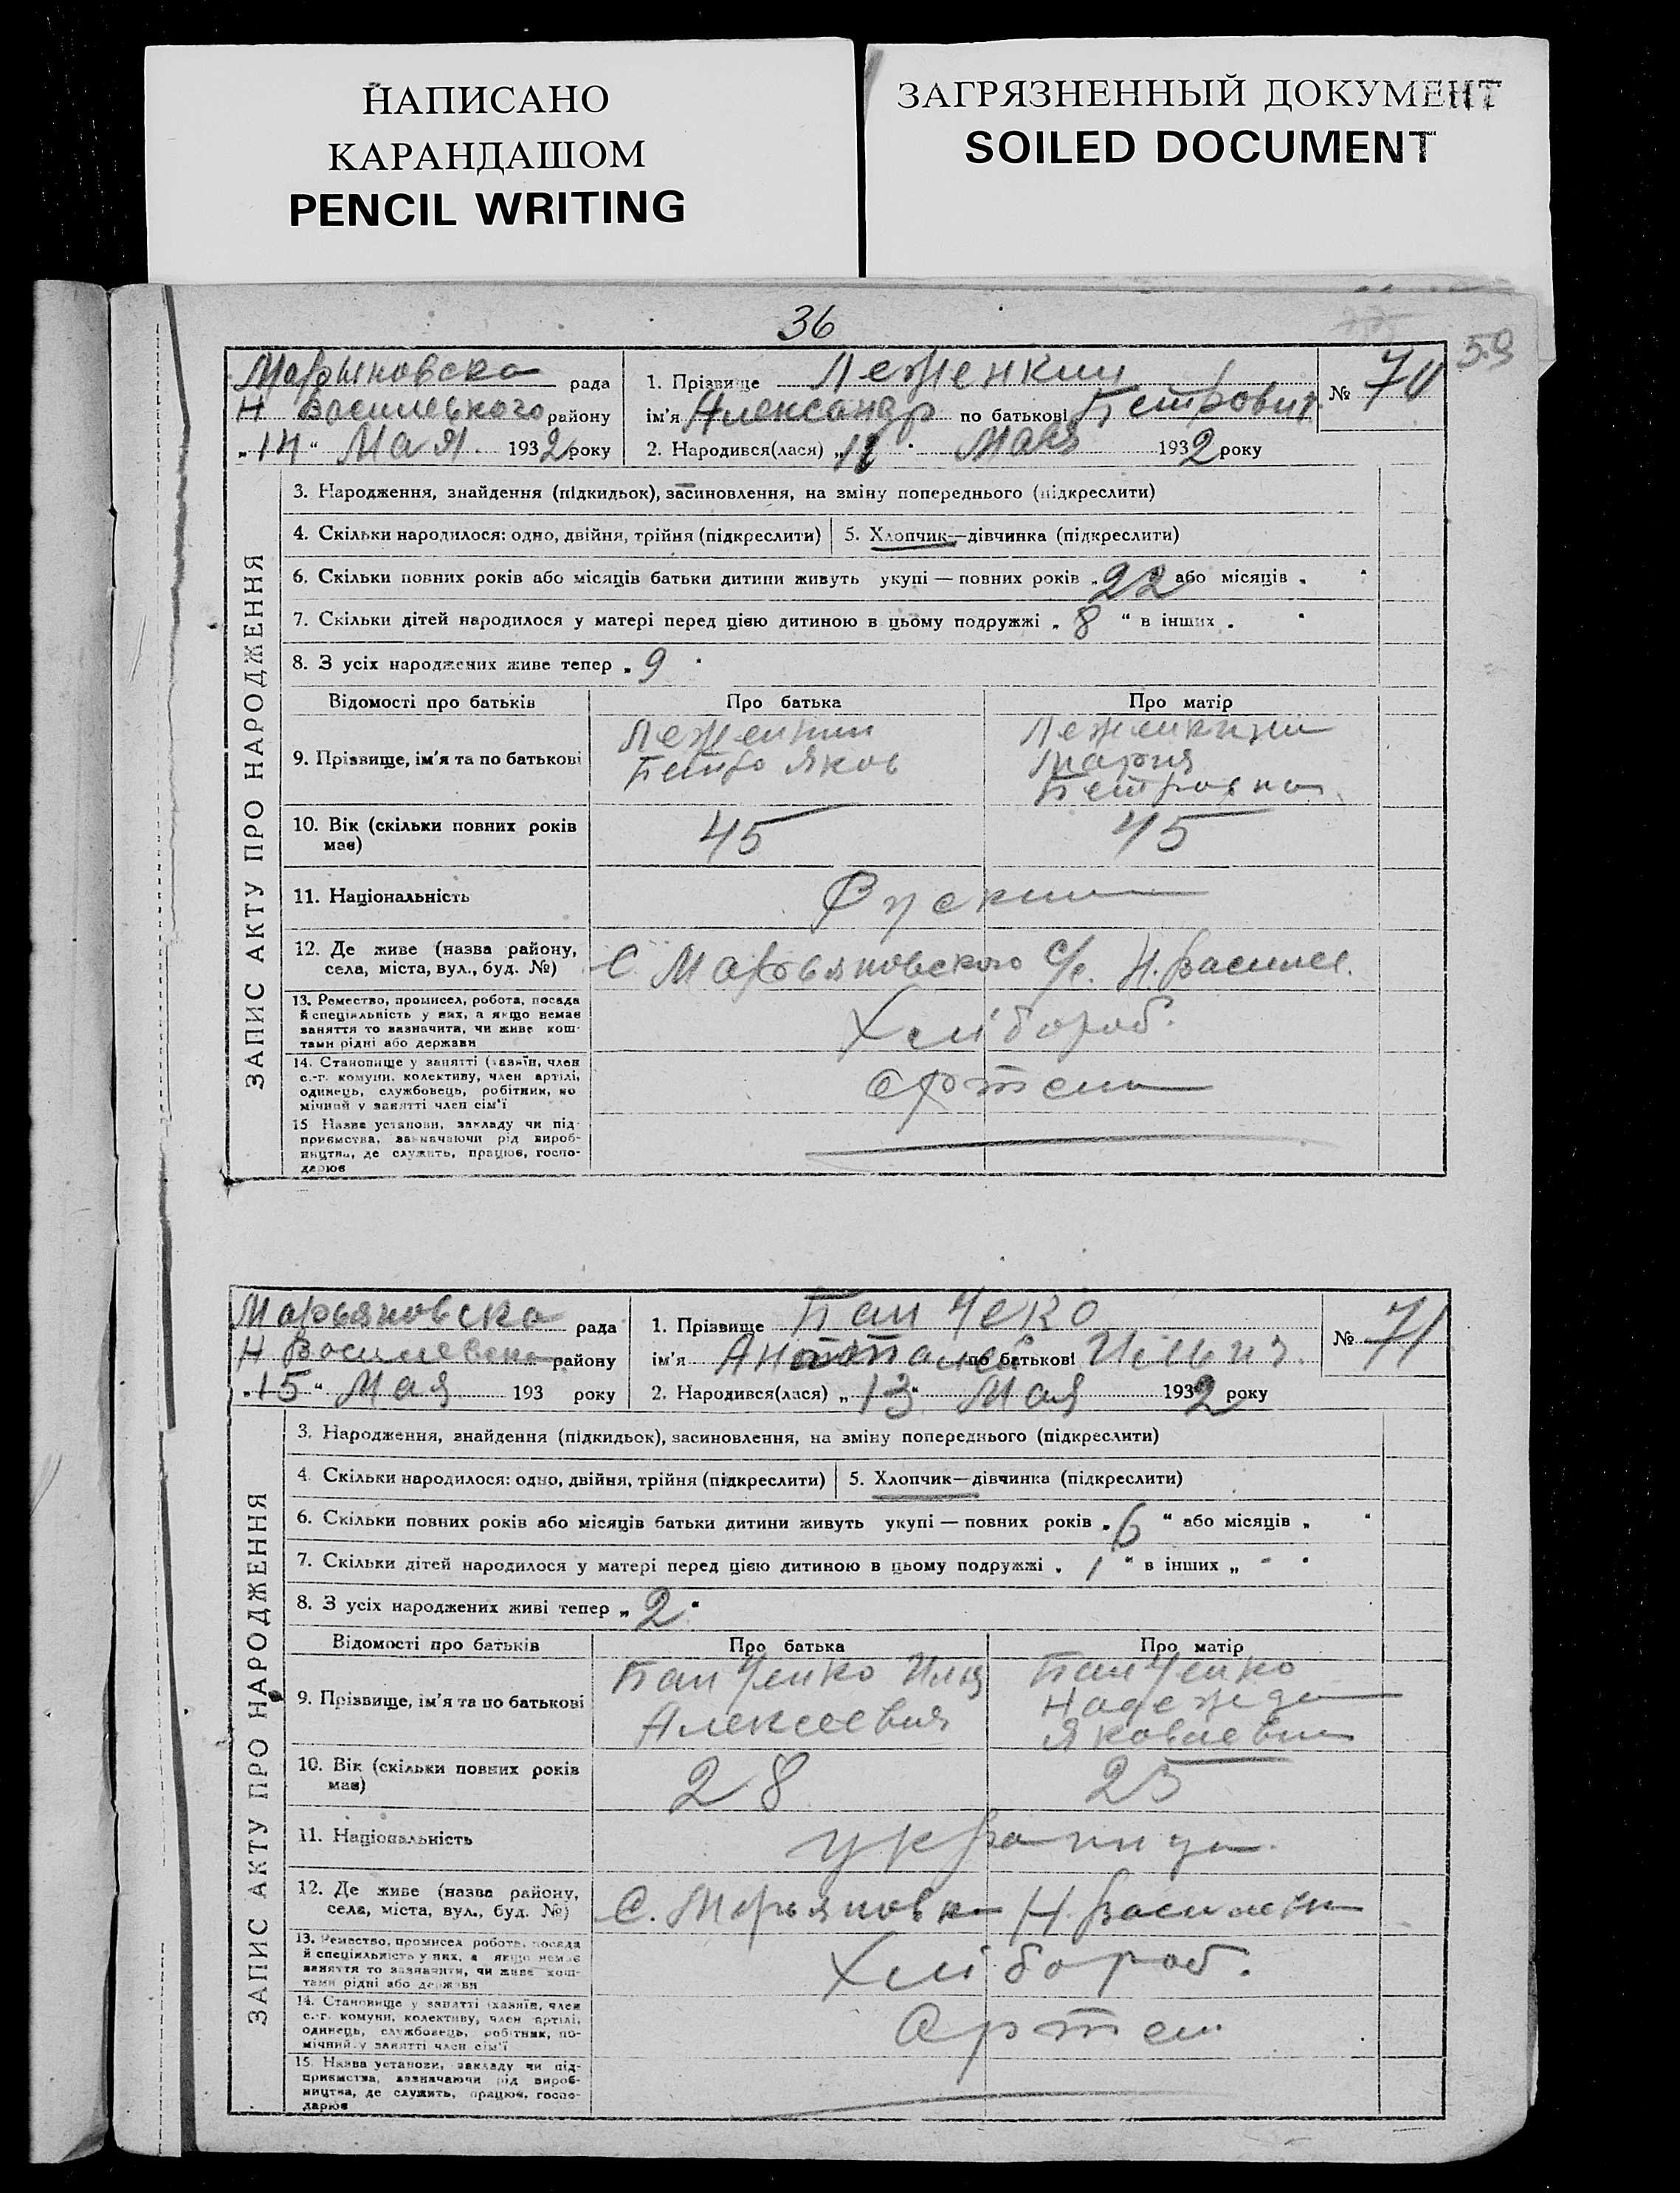 НАПИСАНО
КАРАНДАШОМ
PENCIL WRITING
ЗАГРЯЗНЕННЫЙ ДОКУМЕНТ
SOILED DOCUMENT
36
59
Марьяновска рада
Н Василевского району
„14“ Мая 1932 року
1. Прізвище Леженкин
ім'я Александр по батькові Петрович
2. Народився(лася) „11“ Мая 1932 року
№ 70
ЗАПИС АКТУ ПРО НАРОДЖЕННЯ
3. Народження, знайдення (підкидьок), засиновлення, на зміну попереднього (підкреслити)
4. Скільки народилося: одно, двійня, трійня (підкреслити)
5. Хлопчик—дівчинка (підкреслити)
6. Скільки повних років або місяців батьки дитини живуть укупі — повних років „22“ або місяців „ “
7. Скільки дітей народилося у матері перед цією дитиною в цьому подружжі „8“ в інших „ “
8. З усіх народжених живе тепер „9“
Відомості про батьків Про батька Про матір
9. Прізвище, ім'я та по батькові
Леженкин
Петро Яков
Леженкина
Мария
Петровна
10. Вік (скільки повних років має) 45 45
11. Національність Руский
12. Де живе (назва району, села, міста, вул., буд. №) С Марьяновского с/с. Н. Василев.
13. Ремество, промисел, робота, посада й спеціяльність у них, а якщо немає заняття то зазначити, чи живе коштами рідні або держави
Хлібороб.
14. Становище у занятті (хазяїн, член с.-г. комуни, колективу, член артілі, одинець, службовець, робітник, помічний у занятті член сім'ї
Артели
15 Назва установи, закладу чи підприємства, зазначаючи рід виробництва, де служить, працює, господарює
Марьяновска рада
Н Василевска району
„15“ Мая 193 року
1. Прізвище Панчеко
ім'я Анатолей по батькові Ильич.
2. Народився(лася) „13“ Мая 1932 року
№ 71
ЗАПИС АКТУ ПРО НАРОДЖЕННЯ
3. Народження, знайдення (підкидьок), засиновлення, на зміну попереднього (підкреслити)
4. Скільки народилося: одно, двійня, трійня (підкреслити)
5. Хлопчик—дівчинка (підкреслити)
6. Скільки повних років або місяців батьки дитини живуть укупі — повних років „6“ або місяців „ “
7. Скільки дітей народилося у матері перед цією дитиною в цьому подружжі „1“ в інших „ - “
8. З усіх народжених живі тепер „2“
Відомості про батьків Про батька Про матір
9. Прізвище, ім'я та по батькові
Панченко Илия
Алексеевич
Панченко
Надежда
Яковлевна
10. Вік (скільки повних років має) 28 25
11. Національність украинци
12. Де живе (назва району, села, міста, вул., буд. №) С. Марьяновка Н. Василевки
13. Ремество, промисел робота, посада й спеціяльність у них, а якщо немає заняття то зазначити, чи живе коштами рідні або держави
Хлібороб.
14. Становище у занятті (хазяїн, член с.-г. комуни, колективу, член артілі, одинець, службовець, робітник, помічний у занятті член сім'ї
Артел
15. Назва установи, закладу чи підприємства, зазначаючи рід виробництва, де служить, працює, господарює